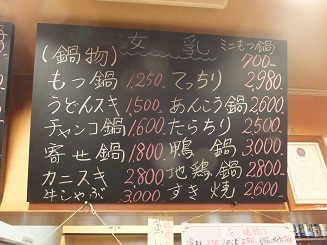 (鍋物)
ミニもつ鍋
700-
もつ鍋 1,250.
てっちり 2,980.
うどんスキ 1,500
あんこう鍋 2,600
チャンコ鍋 1,600
たらちり 2,500
寄せ鍋 1,800
鴨鍋 3,000
カニスキ 2,800
地鶏鍋 2,800
牛しゃぶ 3,000
すき焼 2,600